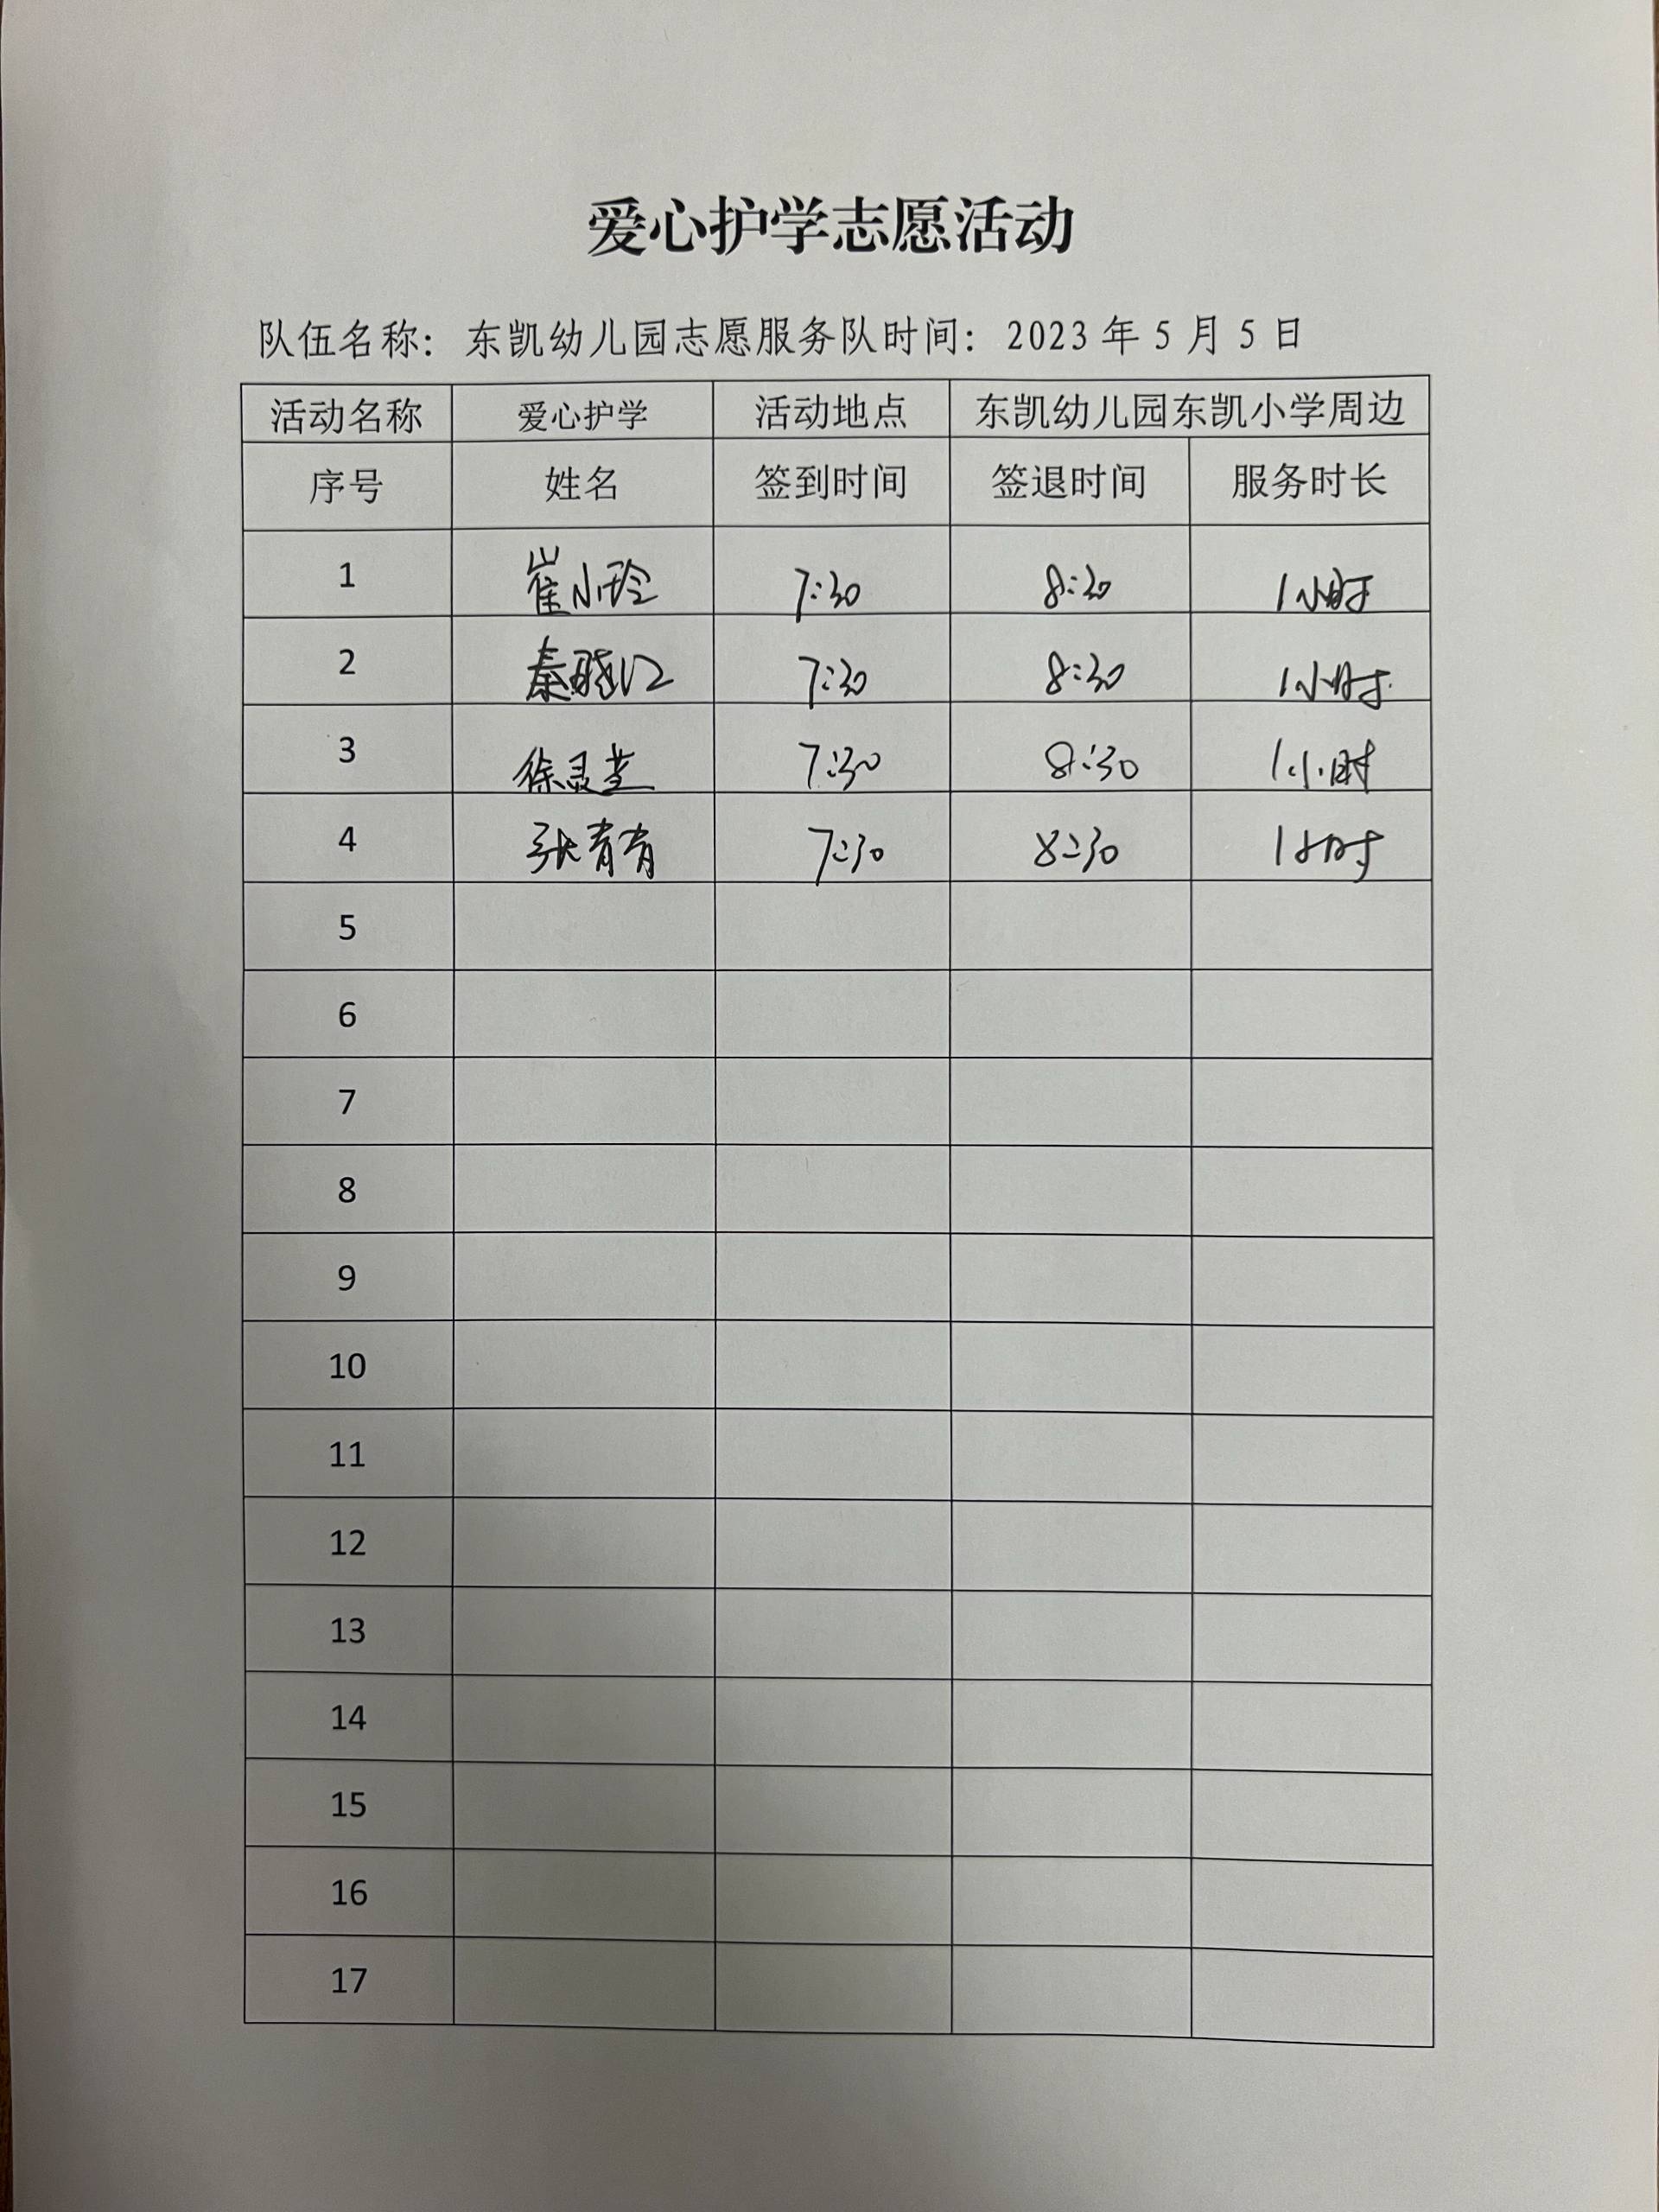 爱心护学志愿活动
队伍名称：东凯幼儿园志愿服务队时间：2023年5月5日
活动名称 爱心护学 活动地点 东凯幼儿园东凯小学周边
序号 姓名 签到时间 签退时间 服务时长
1 崔小玲 7:30 8:30 1小时
2 秦晓江 7:30 8:30 1小时
3 徐灵 7:30 8:30 1小时
4 张青青 7:30 8:30 1小时
5
6
7
8
9
10
11
12
13
14
15
16
17